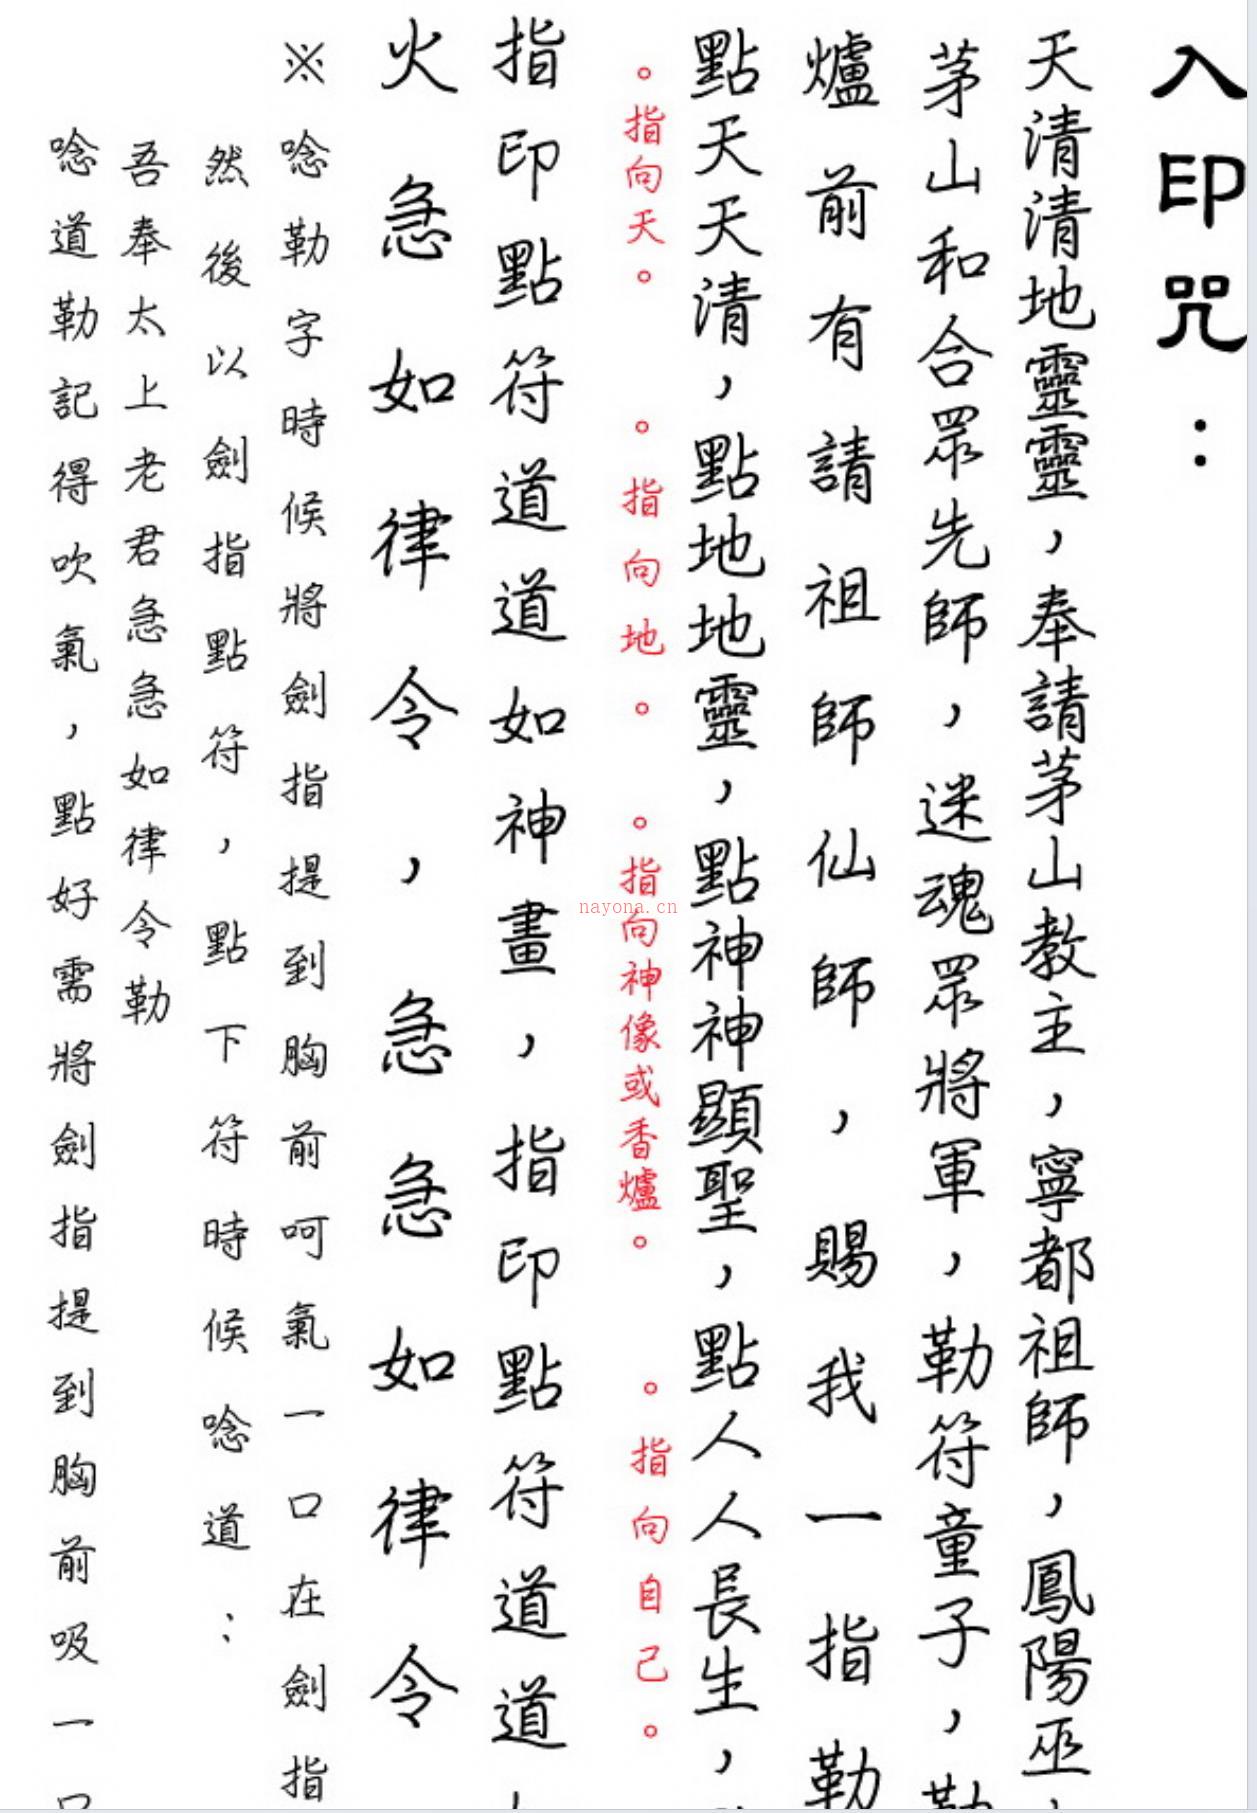 入印咒：
天清清地靈靈，奉請茅山教主，寧都祖師，鳳陽巫
茅山和合眾先師，迷魂眾將軍，勒符童子，勒
爐前有請祖師仙師，賜我一指勒
點天天清，點地地靈，點神神顯聖，點人人長生，
。指向天。 。指向地。 。指向神像或香爐。 。指向自己。
指印點符道道如神畫，指印點符道道
火急如律令，急急如律令
※唸勒字時候將劍指提到胸前呵氣一口在劍指
然後以劍指點符，點下符時候唸道：
吾奉太上老君急急如律令勒
唸道勒記得吹氣，點好需將劍指提到胸前吸一口
nayona.cn